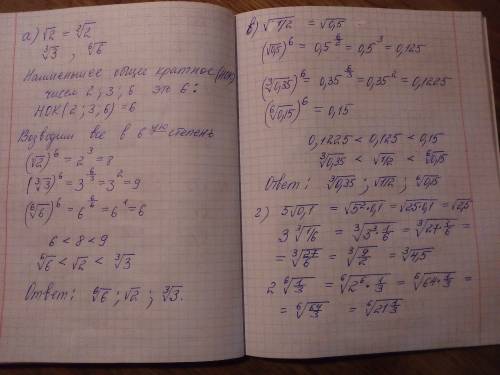 а) √2 = ²√2
³√3 , ⁶√6
Наименьшее общее кратное (НОК)
чисел 2; 3; 6 это 6:
НОК(2; 3; 6) = 6
Возводим все в 6 степень
(√2)⁶ = 2³ = 8
(³√3)⁶ = 3^(6/3) = 3² = 9
(⁶√6)⁶ = 6^(6/6) = 6¹ = 6
6 < 8 < 9
⁶√6 < √2 < ³√3
Ответ: ⁶√6 ; √2 ; ³√3.
в) √1/2 = √0,5
(√0,5)⁶ = 0,5^(6/2) = 0,5³ = 0,125
(³√0,35)⁶ = 0,35^(6/3) = 0,35² = 0,1225
(⁶√0,15)⁶ = 0,15
0,1225 < 0,125 < 0,15
³√0,35 < √1/2 < ⁶√0,15
Ответ: ³√0,35 ; √1/2 ; ⁶√0,15
г) 5√0,1 = √5²·0,1 = √25·0,1 = √2,5
3 ³√1/6 = ³√3³·1/6 = ³√27·1/6 =
= ³√27/6 = ³√9/2 = ³√4,5
2 ⁶√1/3 = ⁶√2⁶·1/3 = ⁶√64·1/3 =
= ⁶√64/3 = ⁶√21 1/3